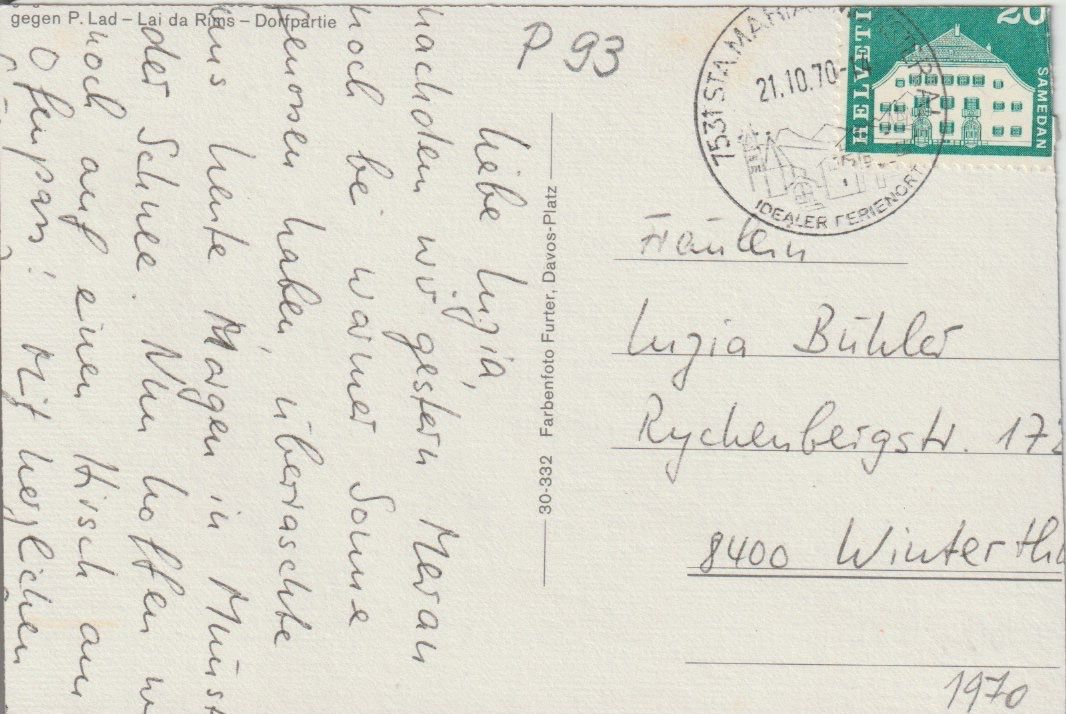 gegen P. Lad – Lai da Rims – Dorfpartie
Liebe Luzia,
nachdem wir gestern Meran
noch bei warmer Sonne
genossen haben, überraschte
uns heute Morgen in Müst
der Schnee. Nun hoffen w
noch auf einen Hirsch am
Ofenpass! Mit herzlichen
30-332 Farbenfoto Furter, Davos-Platz
P 93
7531 STA. MARIA
21.10.70-14
IDEALER FERIENORT
HELVETI
20
SAMEDAN
Fräulein
Luzia Bühler
Rychenbergstr. 172
8400 Winterthu
1970